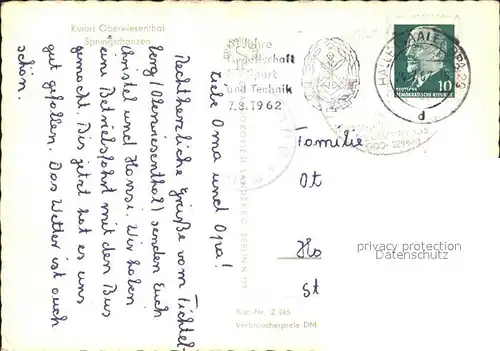 Kurort Oberwiesenthal
Sprungschanzen
Liebe Oma und Opa!
Rechtherzliche Grüße vom Fichtel-
berg (Oberwiesenthal) senden Euch
Christel und Hansi. Wir haben
eine Betriebsfahrt mit dem Bus
gemacht. Bis jetzt hat es uns
gut gefallen. Das Wetter ist auch
schön.
Jahre
Gesellschaft
Sport
und Technik
7.8.1962
HALLE (SAALE)
d
DEUTSCHE
DEMOKRATISCHE REPUBLIK
10
Familie
Ot
Ho
St
privacy protection
Datenschutz
Best.-Nr. Z 565
Verbraucherpreis DM